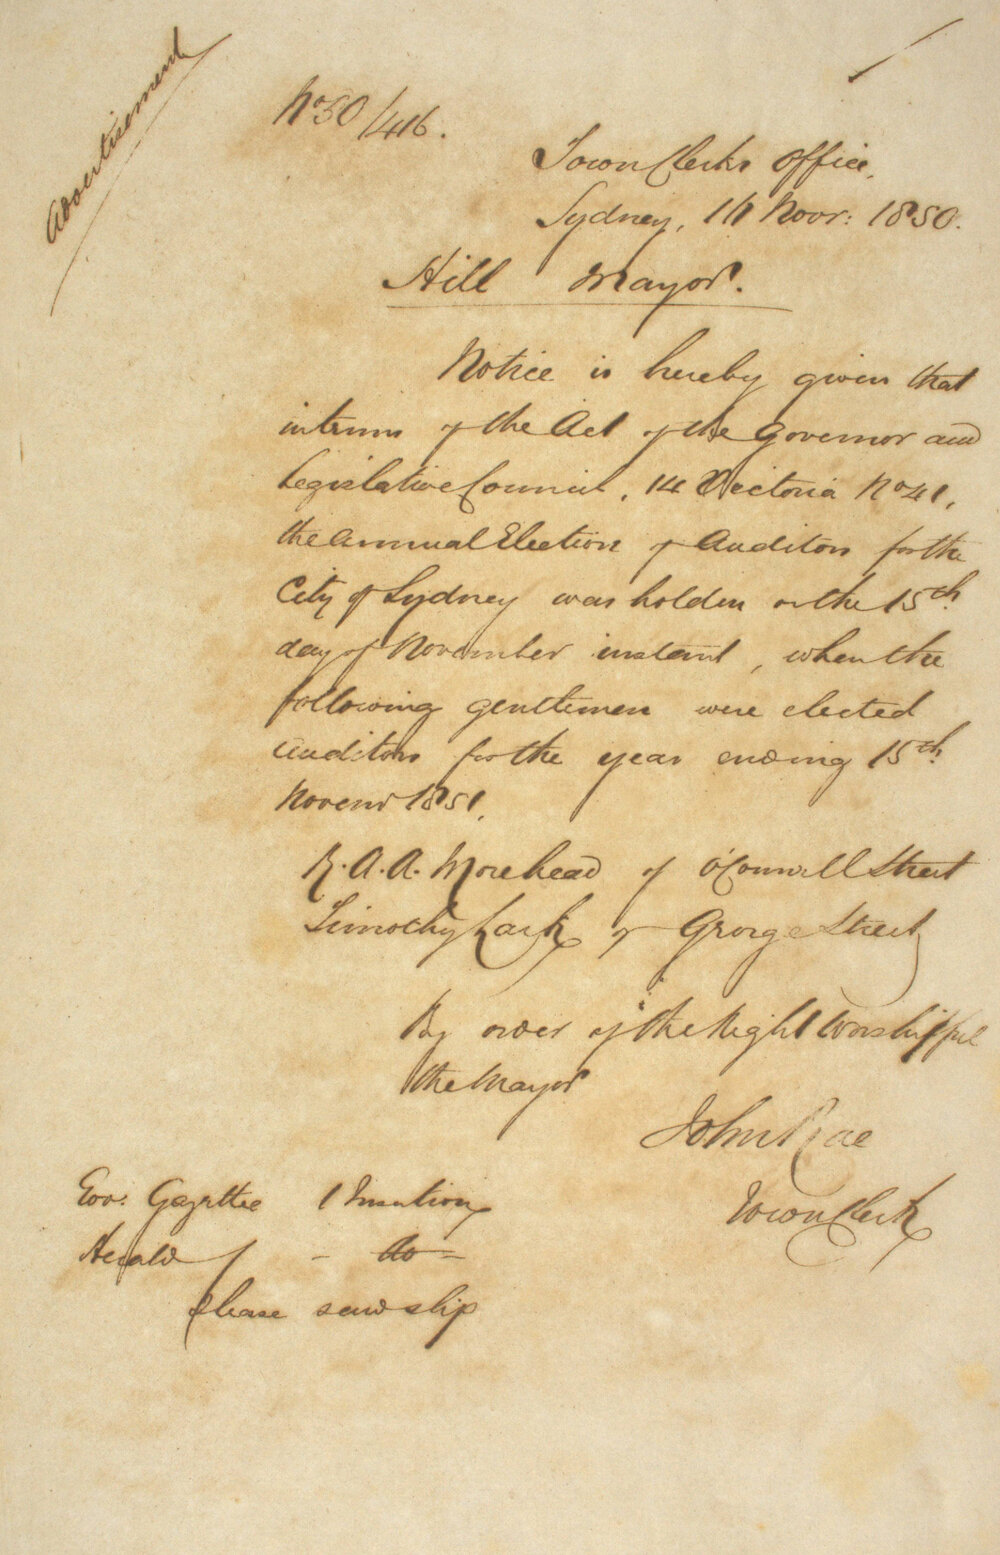 Advertisement
No 50/416.
Town Clerks Office,
Sydney, Novr: 1850.
Hill Mayor.
Notice is hereby given that
in terms of the Act of the Governor and
Legislative Council, 14 Victoria No 41,
the Annual Election of Auditors for the
City of Sydney was holden on the 15th
day of November instant, when the
following gentlemen were elected
Auditors for the year ending 15th
Novemr 1851.
R. A. A. Morehead of O'Connell Street
Timothy Lark of George Street
By order of the Right Worshipful
the Mayor
John Rae
Town Clerk
Gov: Gazette 1 Insertion
Herald 1 - do -
please send slip